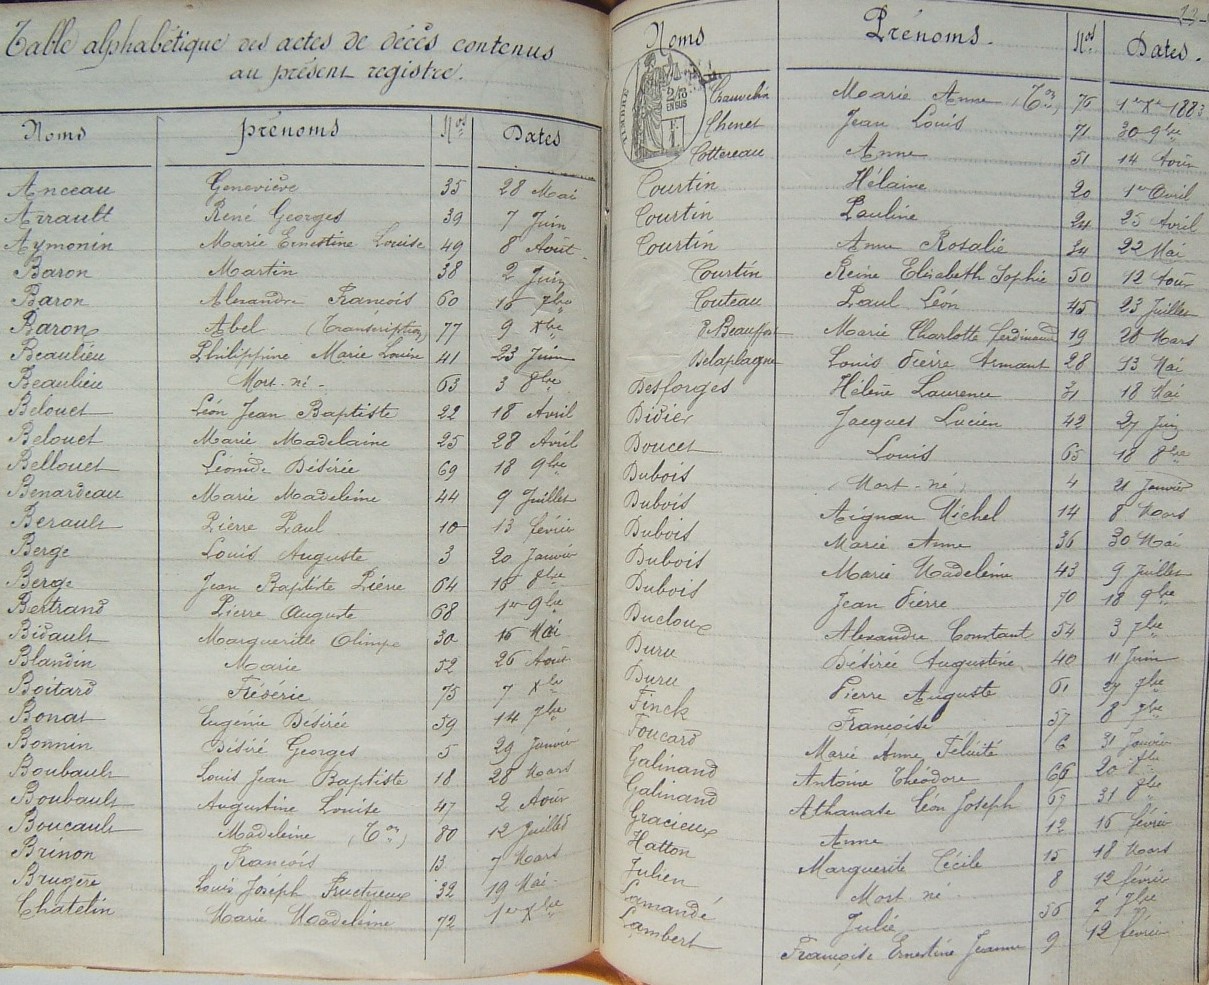 Table alphabétique des actes de décès contenus
au présent registre.
Noms prénoms Nos Dates
Anceau Geneviève 35 28 Mai
Arrault René Georges 39 7 Juin
Aymonin Marie Ernestine Louise 49 8 Août
Baron Martin 38 2 Juin
Baron Alexandre François 60 16 7bre
Baron Abel (Transcription) 77 9 Xbre
Beaulieu Philippine Marie Louise 41 23 Juin
Beaulieu Mort-né- 63 3 8bre
Belouet Léon Jean Baptiste 22 18 Avril
Belouet Marie Madelaine 25 28 Avril
Bellouet Léonide Désirée 69 18 9bre
Benardeau Marie Madeleine 44 9 Juillet
Berault Pierre Paul 10 13 février
Berge Louis Auguste 3 20 Janvier
Berge Jean Baptiste Pierre 64 16 8bre
Bertrand Pierre Auguste 68 1er 9bre
Bidault Marguerite Olimpe 30 16 Mai
Blandin Marie 52 26 Août
Boitard Frédéric 75 7 Xbre
Bonat Eugénie Désirée 59 14 7bre
Bonnin Désiré Georges 5 29 Janvier
Boubault Louis Jean Baptiste 18 28 Mars
Boubault Augustine Louise 47 2 Août
Boucault Madeleine (Ton) 80 12 Juillet
Brinon François 13 7 Mars
Brugère Louis Joséph Fructueux 32 19 Mai
Chatelin Marie Madeleine 72 1er Xbre
Noms Prénoms. Nos Dates.
TIMBRE
2/10
EN SUS
F.
1.
Chauvelin Marie Anne (Ton) 76 1er Xbre 1883
Chenet Jean Louis 71 30 9bre
Cottereau Anne 51 14 Août
Courtin Hélaine 20 1er Avril
Courtin Pauline 24 25 Avril
Courtin Anne Rosalie 34 22 Mai
Courtin Reine Elisabeth Sophie 50 12 Août
Couteau Paul Léon 45 23 Juillet
De Beauffort Marie Charlotte ferdinand 19 28 Mars
Delaplagne Louis Pierre Armant 28 13 Mai
Desforges Hélène Laurence 31 18 Mai
Didier Jacques Lucien 42 27 Juin
Doucet Louis 65 18 8bre
Dubois (Mort-né) 4 21 Janvier
Dubois Aignan Michel 14 8 Mars
Dubois Marie Anne 36 30 Mai
Dubois Marie Madeleine 43 9 Juillet
Dubois Jean Pierre 70 18 9bre
Ducloux Alexandre Constant 54 3 7bre
Duru Désirée Augustine 40 11 Juin
Duru Pierre Auguste 61 27 7bre
Finck Françoise 57 8 7bre
Foucard Marie Anne Félicité 6 31 Janvier
Galinand Antoine Théodore 66 20
Galinand Athanase Léon Joseph 67 31 8bre
Gracieux Anne 12 16 février
Hatton Marguerite Cécile 15 18 Mars
Julien Mort né 8 12 février
Lamandé Julie 56 7 7bre
Lambert Françoise Ernestine Jeanne 9 12 février